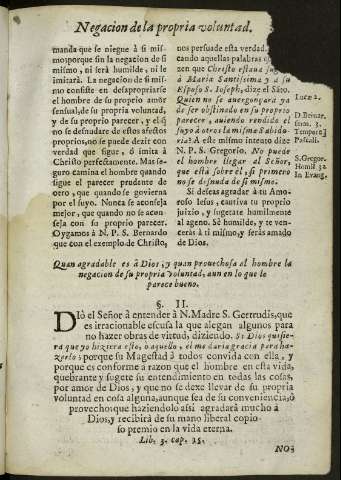 Negacion de la propria voluntad.
manda que se niegue à si mis-
mo; porque sin la negacion de si
mismo, ni serà humilde, ni le
imitarà. La negacion de si mis-
mo consiste en desapropriarse
el hombre de su proprio amor
sensual, de su propria voluntad,
y de su proprio parecer, y el q̃
no se desnudare de estos afectos
proprios, no se puede dezir con
verdad que sigue, ò imita à
Christo perfectamente. Mas se-
guro camina el hombre quando
sigue el parecer prudente de
otro, que quando se govierna
por el suyo. Nunca se aconseja
mejor, que quando no se acon-
seja con su proprio parecer.
Oygamos à N. P. S. Bernardo
que con el exemplo de Christo,
nos persuade esta verdad,
cando aquellas palabras q
zen que Christo estaua suj
à Maria Santissima y à su
Esposo S. Joseph, dize el Sãto.
Quien no se auergonçarà ya
de ser obstinado en su proprio
parecer, auiendo rendido el
suyo à otros la misma Sabidu-
ria? A este mismo intento dize
N. P. S. Gregorio. No puede
el hombre llegar al Señor,
que està sobre el, si primero
no se desnuda de si mismo.
Si deseas agradar à tu Amo-
roso Iesus, cautiva tu proprio
juizio, y sugetate humilmente
al ageno. Sè humilde, y te ven-
ceràs à ti mismo, y seràs amado
de Dios.
Lucæ 2.
D. Bernar.
serm. 3.
Tempore
Paschali.
S. Gregor.
Homil. 32
In Evang.
Quan agradable es à Dios, y quan prouechosa al hombre la
negacion de su propria voluntad, aun en lo que le
parece bueno.
§. II.
Diò el Señor à entender à N. Madre S. Gertrudis, que
es irracionable escusa la que alegan algunos para
no hazer obras de virtud, diziendo. Si Dios quisie-
ra que yo hiziera esto, ò aquello, el me daria gracia para ha-
zerlo; porque su Magestad à todos convida con ella, y
porque es conforme a razon que el hombre en esta vida,
quebrante y sugete su entendimiento en todas las cosas,
por amor de Dios, y que no se deze llevar de su propria
voluntad en cosa alguna, aunque sea de su conveniencia, ò
provecho; que haziendolo assi agradarà mucho à
Dios, y recibirà de su mano liberal copio-
so premio en la vida eterna.
Lib. 3. cap. 25.
NO